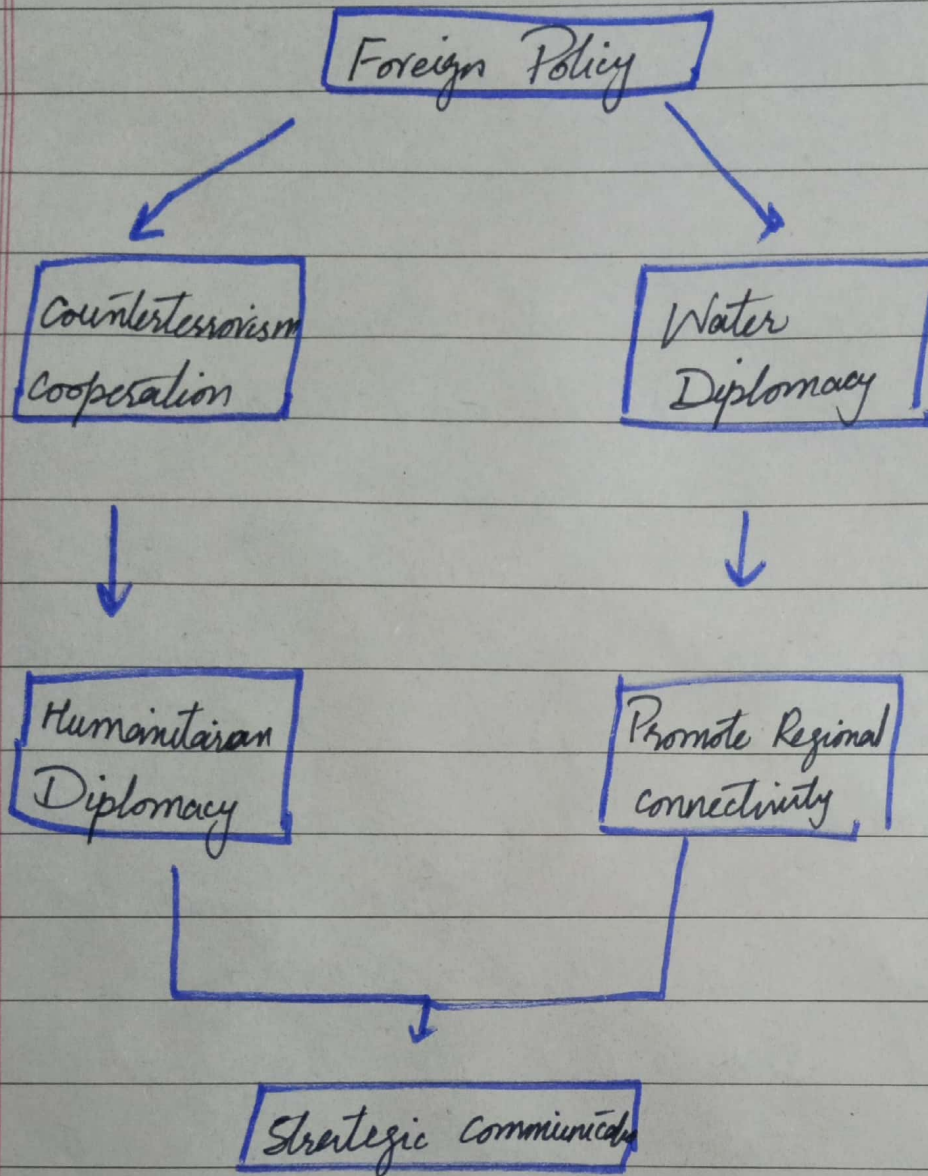 Foreign Policy
Counterterrorism
cooperation
Water
Diplomacy
Humanitarian
Diplomacy
Promote Regional
connectivity
Strategic